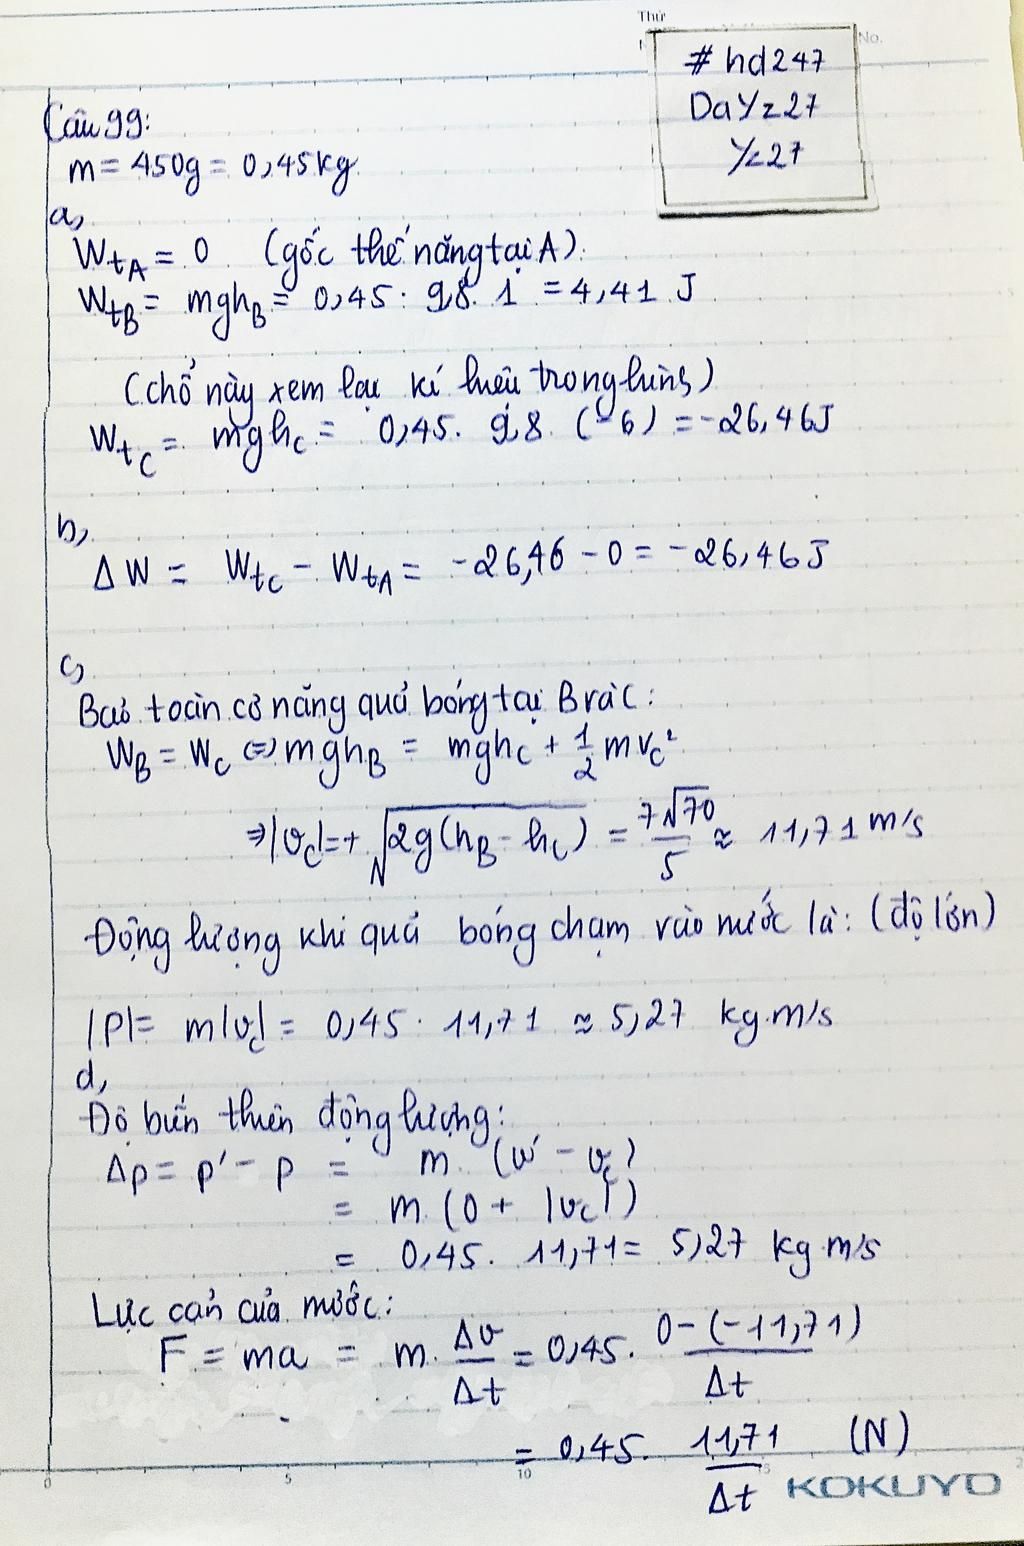 Thứ
No.
# hd247
DaYz27
Yz27
Câu 99:
m = 450g = 0,45kg
a,
WtA = 0 (gốc thế năng tại A)
WtB = mghB = 0,45 . 9,8 . 1 = 4,41 J
(chổ này xem lại kí hiệu trong hình)
WtC = mghC = 0,45 . 9,8 (-6) = -26,46J
b,
ΔW = WtC - WtA = -26,46 - 0 = -26,46J
c,
Bảo toàn cơ năng quả bóng tại B và C:
WB = WC ⇔ mghB = mghC + 1/2 mvC²
⇒ |vC| = + √2g(hB - hC) = 7√70/5 ≈ 11,71 m/s
Động lượng khi quả bóng chạm vào nước là: (độ lớn)
|P| = m|vC| = 0,45 . 11,71 ≈ 5,27 kg.m/s
d,
Độ biến thiên động lượng:
Δp = p' - p = m. (v' - vC)
= m. (0 + |vC|)
= 0,45. 11,71 = 5,27 kg.m/s
Lực cản của nước:
F = ma = m. Δv/Δt = 0,45. 0-(-11,71)/Δt
= 0,45. 11,71/Δt (N)
0 5 10 15
KOKUYO